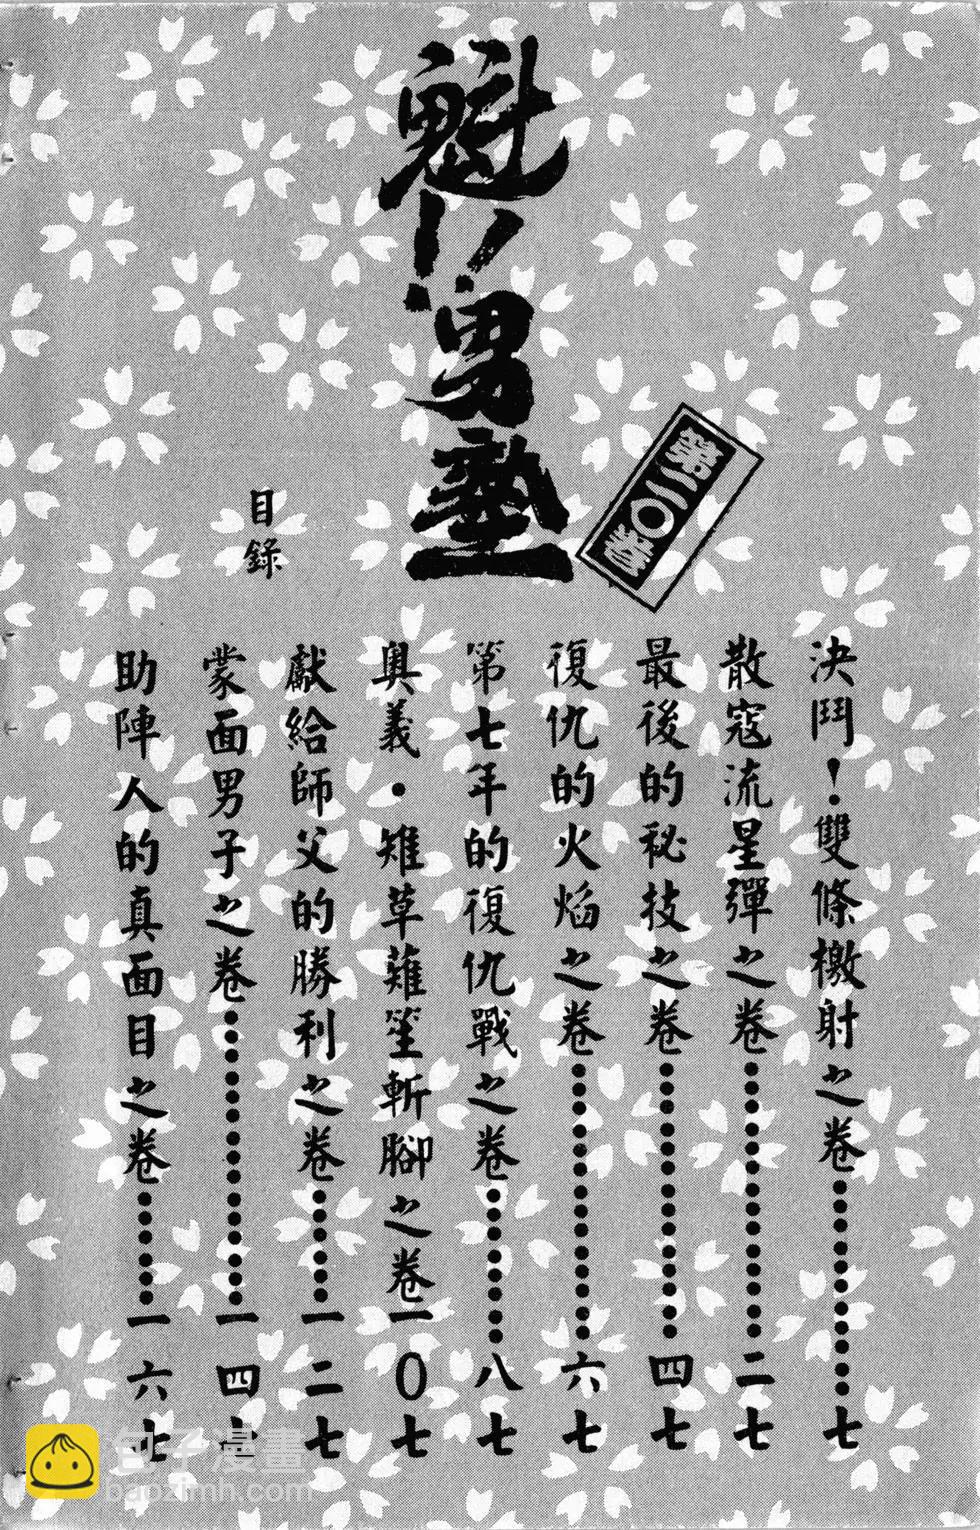 魁!!男塾
第二〇卷
目錄
決鬥!雙條檄射之卷……七
散寇流星彈之卷……二七
最後的秘技之卷……四七
復仇的火焰之卷……六七
第七年的復仇戰之卷……八七
奧義・雉草薙笙斬腳之卷一〇七
獻給師父的勝利之卷……一二七
蒙面男子之卷……一四七
助陣人的真面目之卷……一六七
包子漫畫
baozimh.com